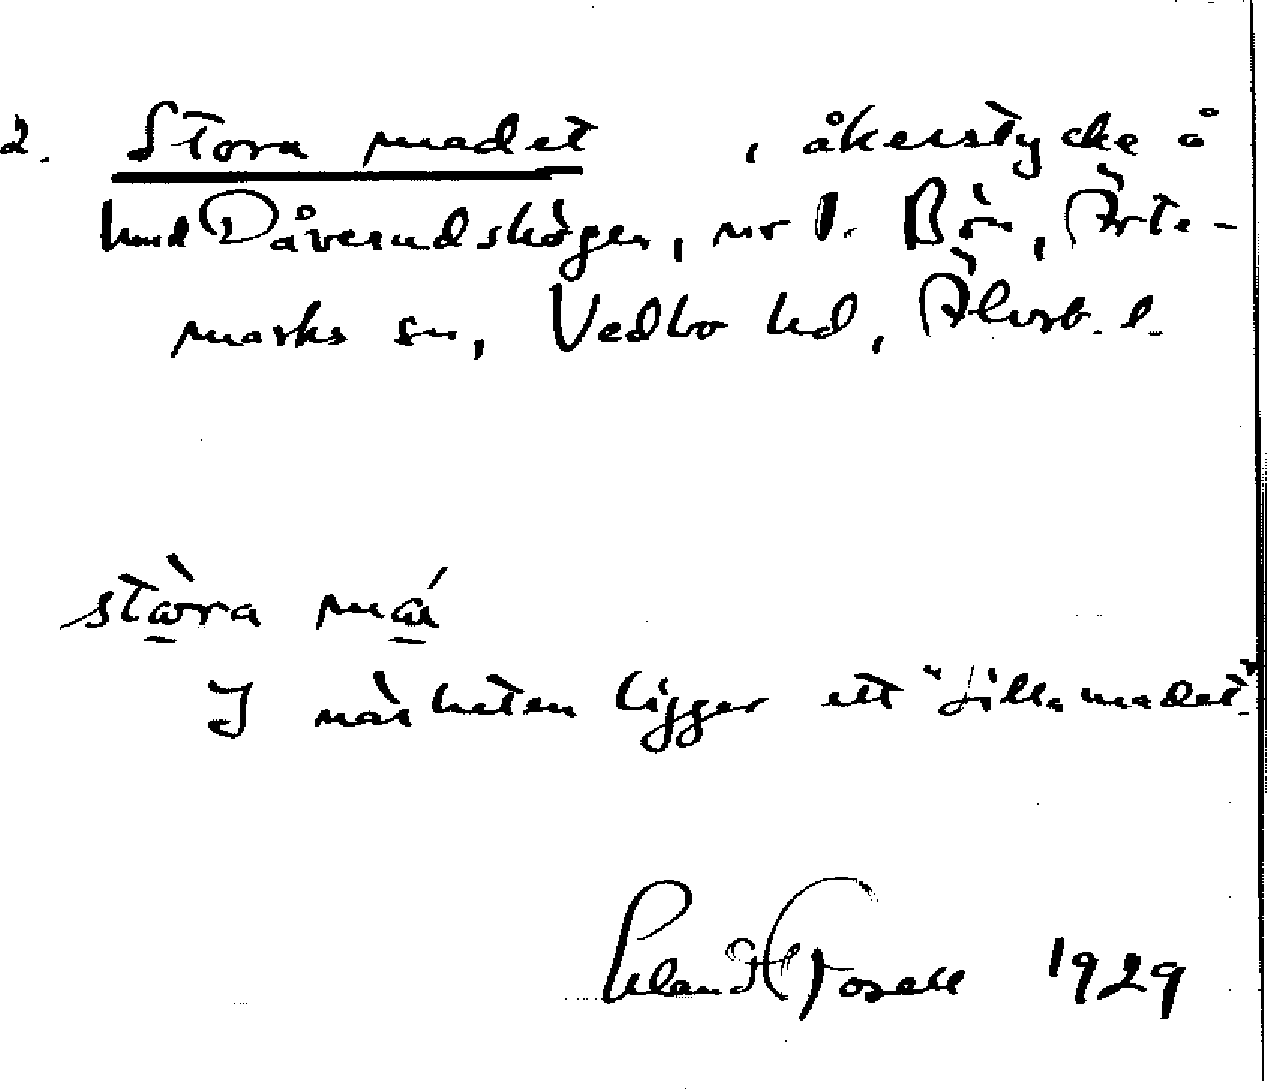 2. Stora madet, åkerstycke å
hmd Dåverudskogen, nr 1. Bön, Årte-
marks sn, Vedbo hd, Älvsb. l.
stòra má
I närheten ligger ett "Lilla madet".
1929